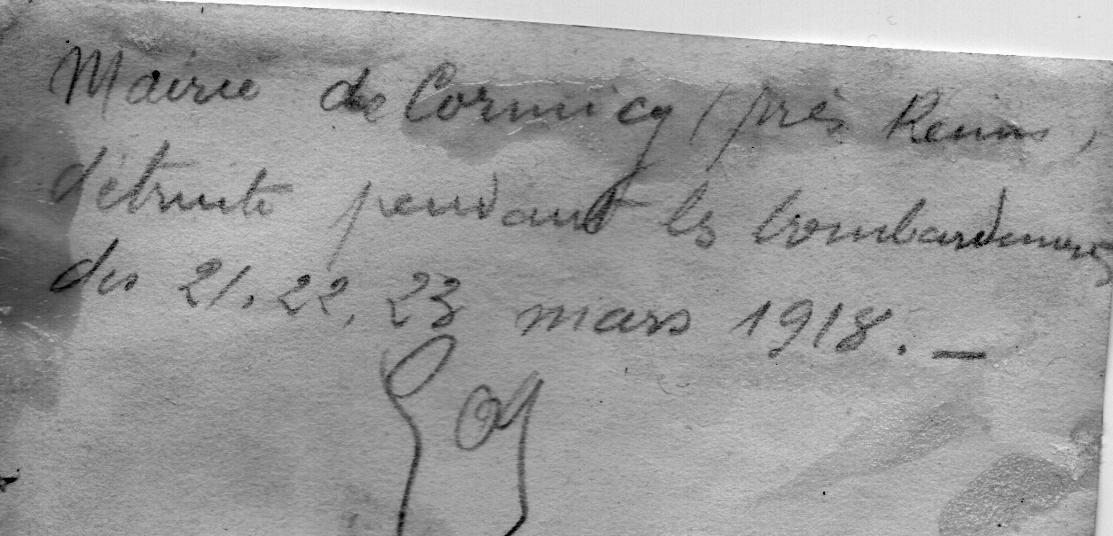 Mairie de Cormicy (près Reims)
détruite pendant les bombardements
des 21. 22, 23 mars 1918. —